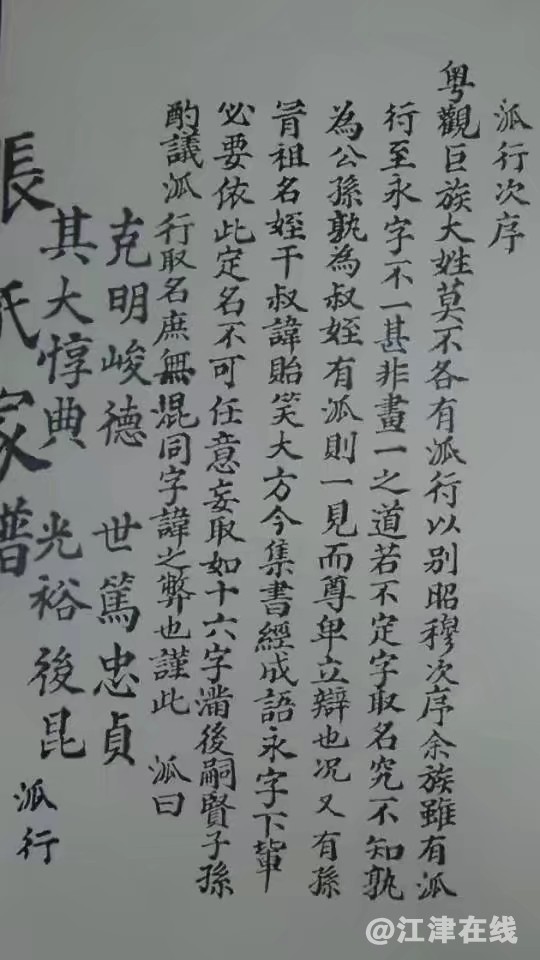 泒行次序
粤觀巨族大姓莫不各有泒行以别昭穆次序余族雖有泒
行至永字不一甚非畫一之道若不定字取名究不知孰
為公孫孰為叔姪有泒則一見而尊卑立辯也况又有孫
冐祖名姪干叔諱貽笑大方今集書經成語永字下軰
必要依此定名不可任意妄取如十六字滿後嗣賢子孫
酌議泒行取名庶無混同字諱之弊也謹此 泒曰
克明峻德 世篤忠貞
其大惇典 光裕後昆 泒行
張氏家譜
@江津在线